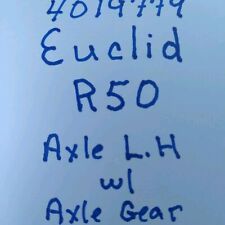 4019779
Euclid
R50
Axle L.H
w/
Axle Gear